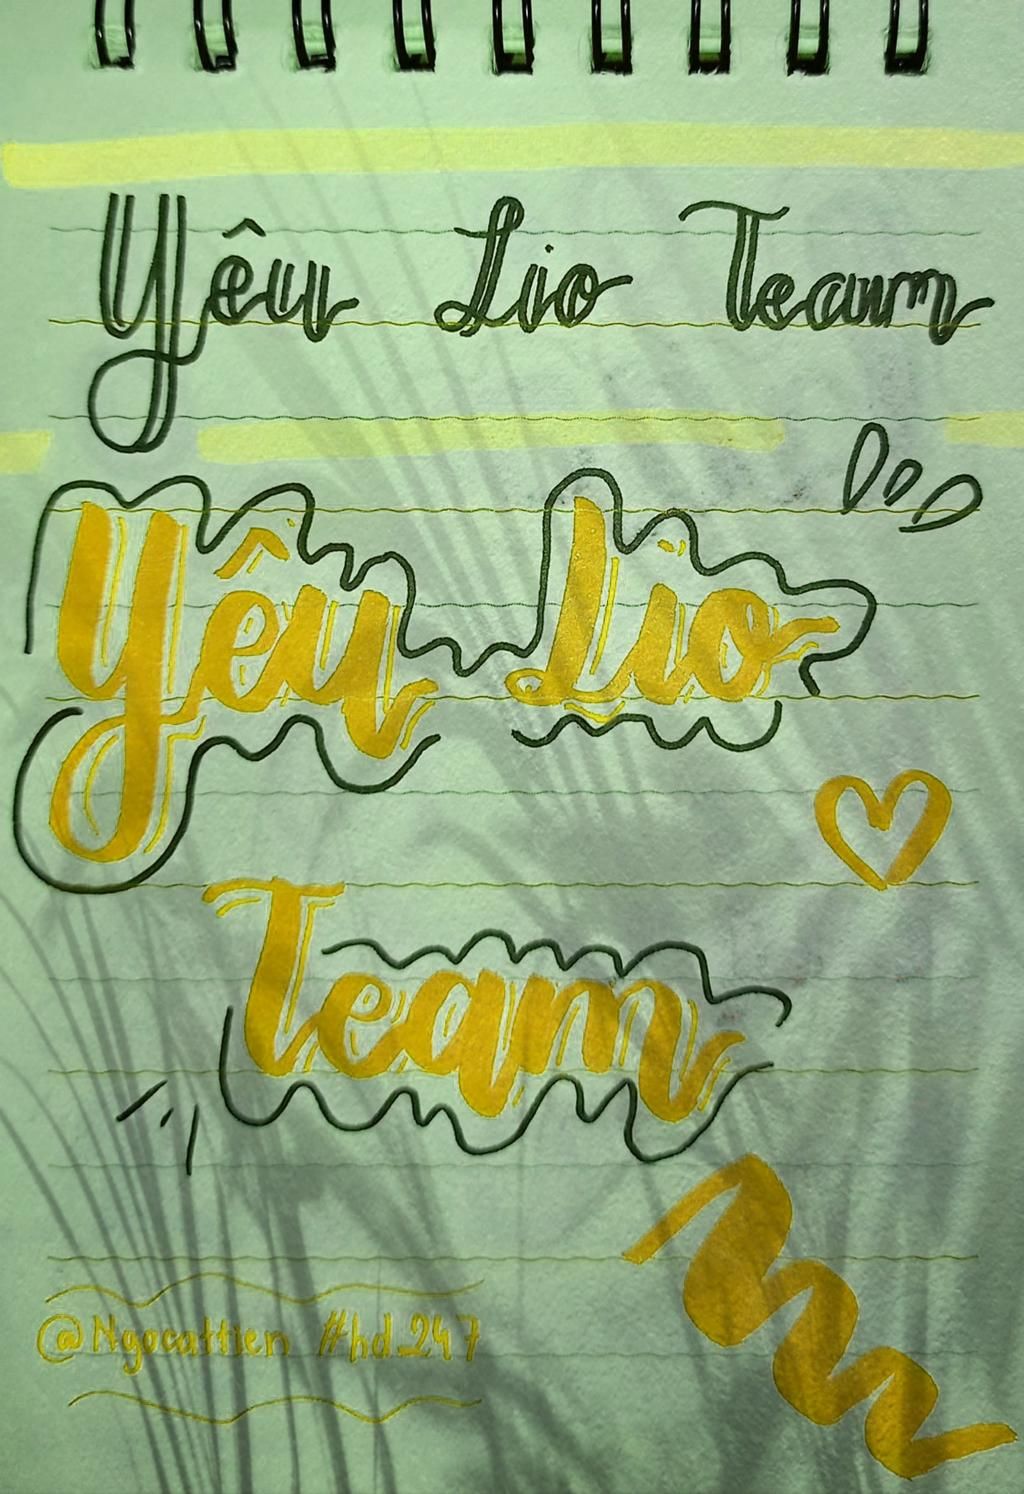 Yêu Lio Team
Yêu Lio
Team
@Ngocattien #hd_247